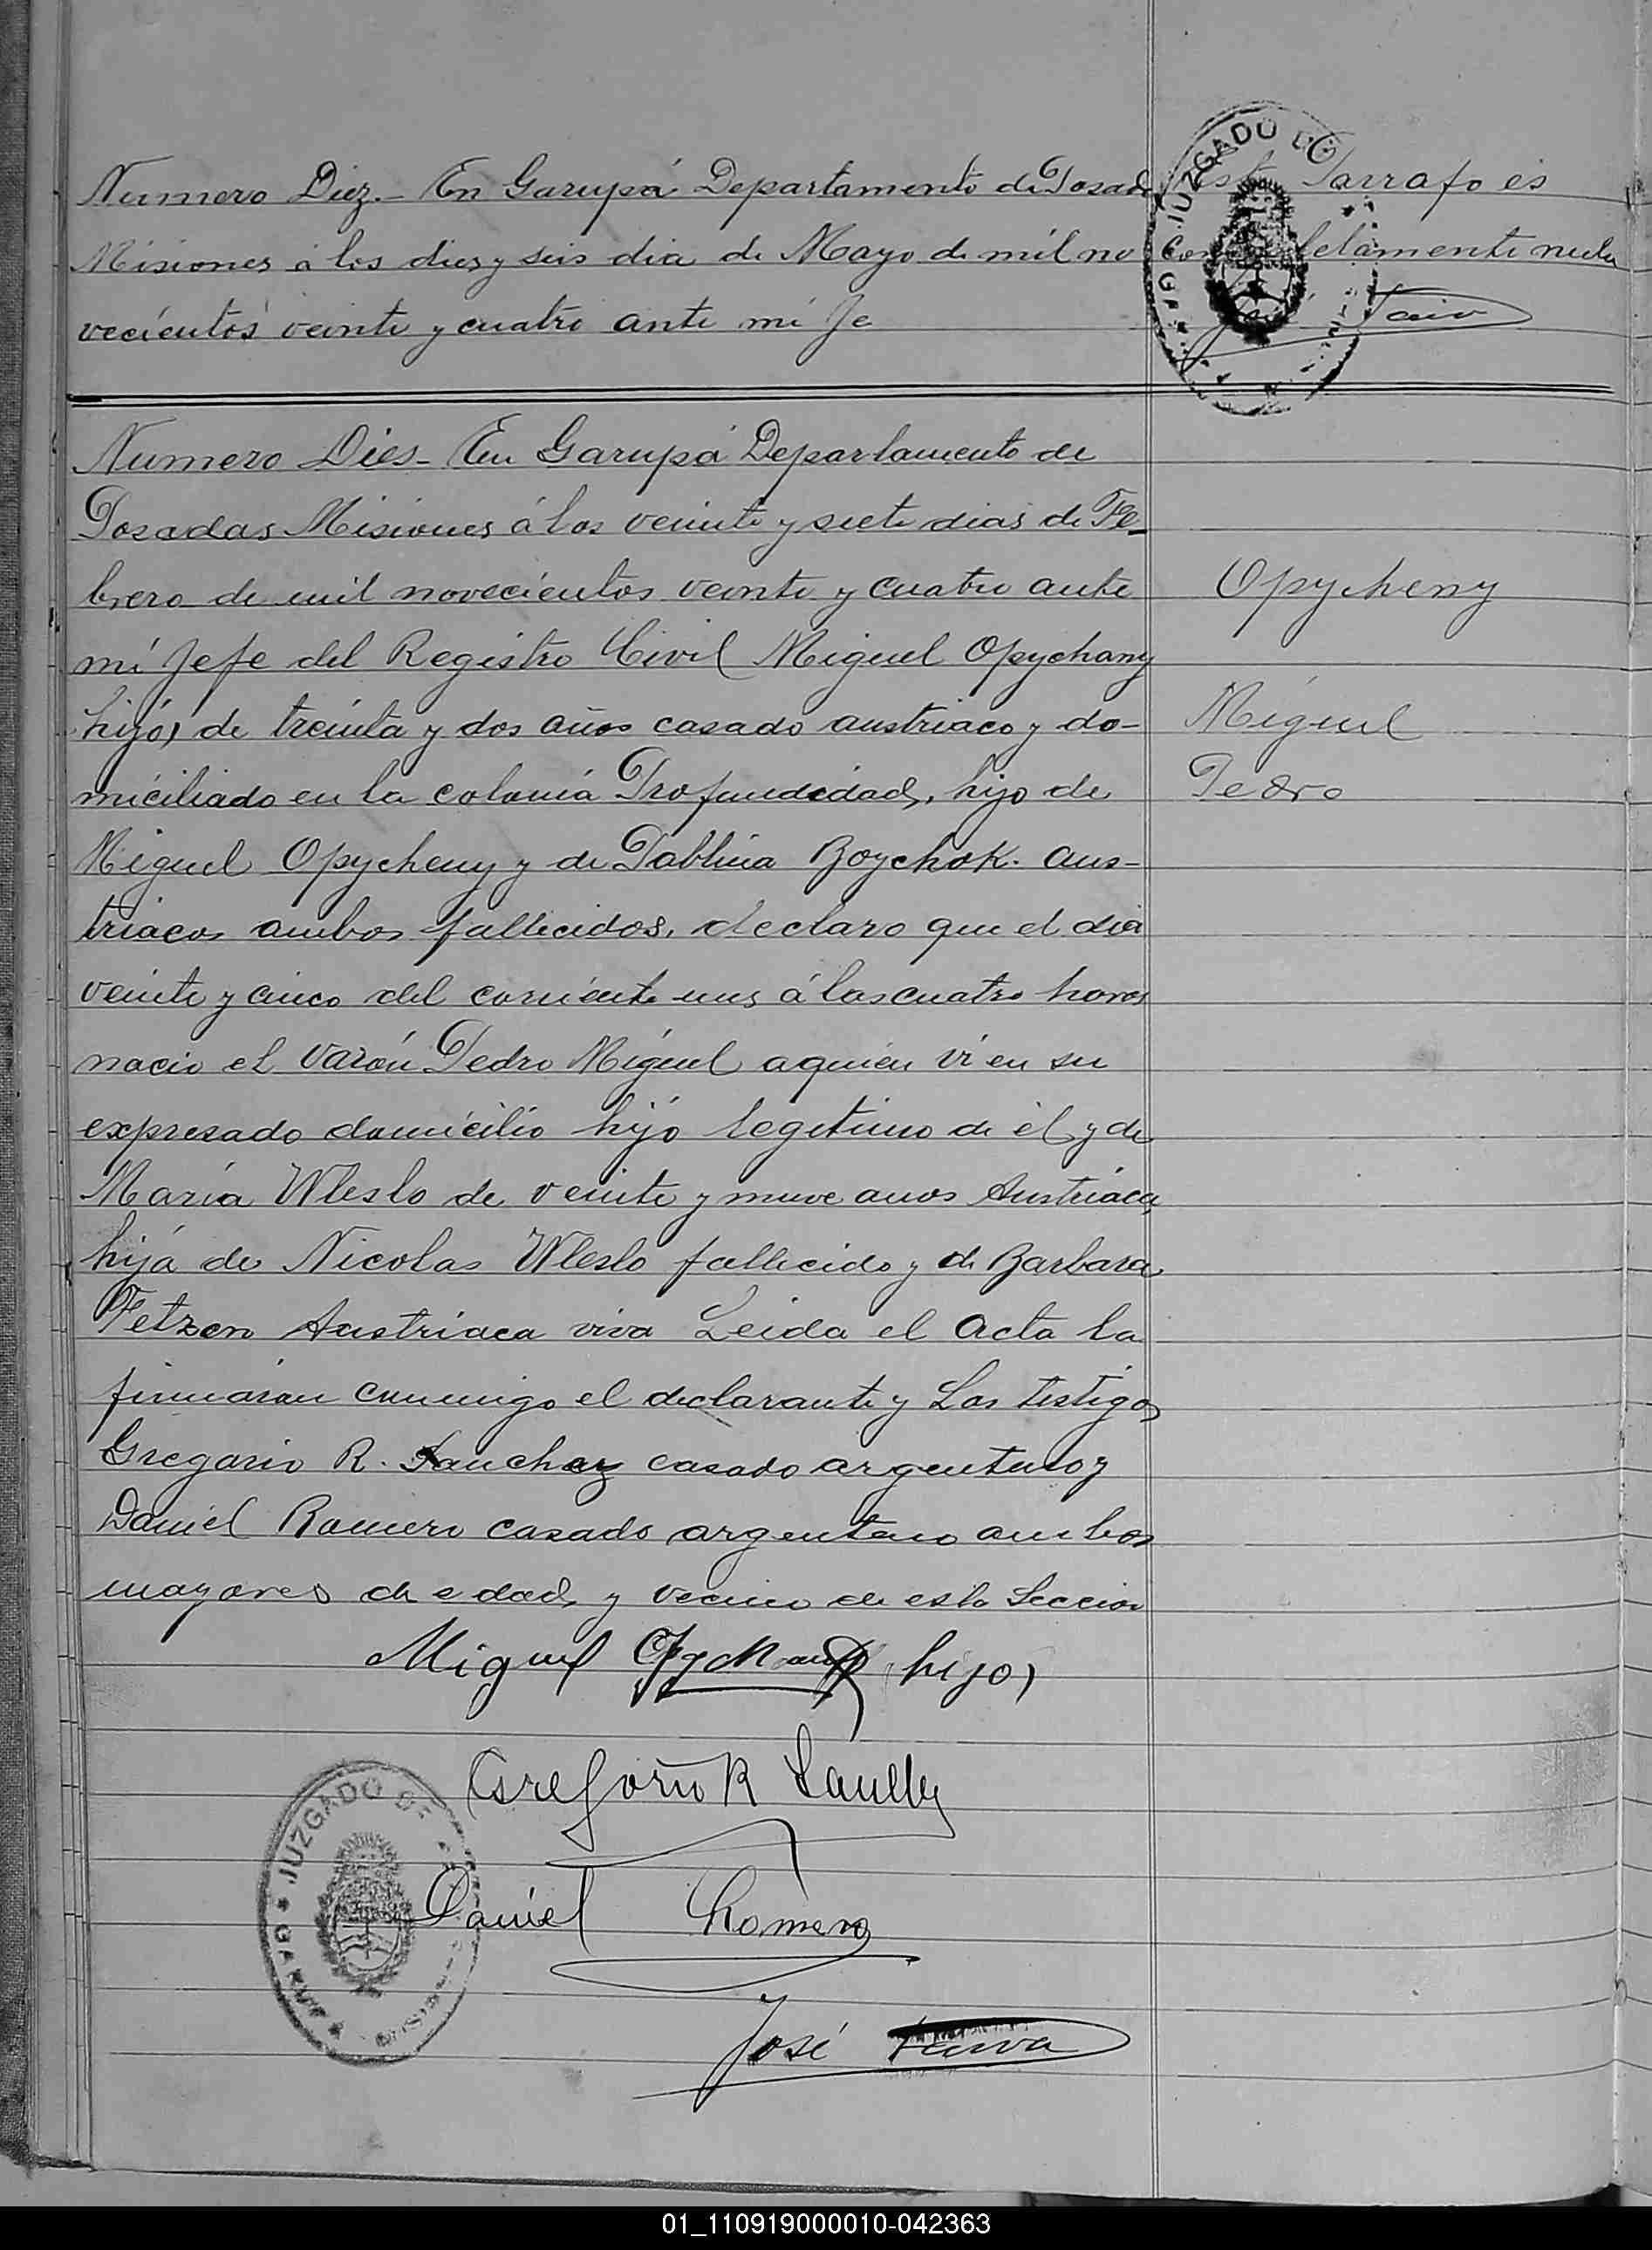 Numero Diez.- En Garupá Departamento de Posad
Misiones á los dies y seis dia de Mayo de mil no
vecientos veinte y cuatro ante mi Je
Este Parrafo es
completamente nulo
JUZGADO DE
GARUPA
Numero Dies- En Garupá Departamento de
Posadas Misiones á los veinte y siete dias de Fe-
brero de mil novecientos veinte y cuatro ante
mí Jefe del Registro Civil Miguel Opychany
hijo) de treinta y dos años casado austriaco y do-
miciliado en la colonia Profundidad, hijo de
Miguel Opycheny y de Pablina Boychok. aus-
triacos ambos fallecidos, declaro que el dia
veinte y cinco del corriente mes á las cuatro horas
nacio el varón Pedro Miguel a quien vi en su
expresado domicilio hijo legitimo de él y de
María Wleslo de veinte y nueve anos Austriaca,
hija de Nicolas Wleslo fallecido y de Barbara
Fetzen Austriaca viva Leida el Acta la
firmaron conmigo el declarante y Los testigos
Gregorio R. Sanchez casado argentino y
Daniel Romero casado argentino ambos
mayores de edad, y vecino de esta Seccion
Opycheny
Miguel
Pedro
Miguel Opychany hijo)
Gregorio R Sanchez
Daniel Romero
José
JUZGADO DE
GARUPA
01_110919000010-042363